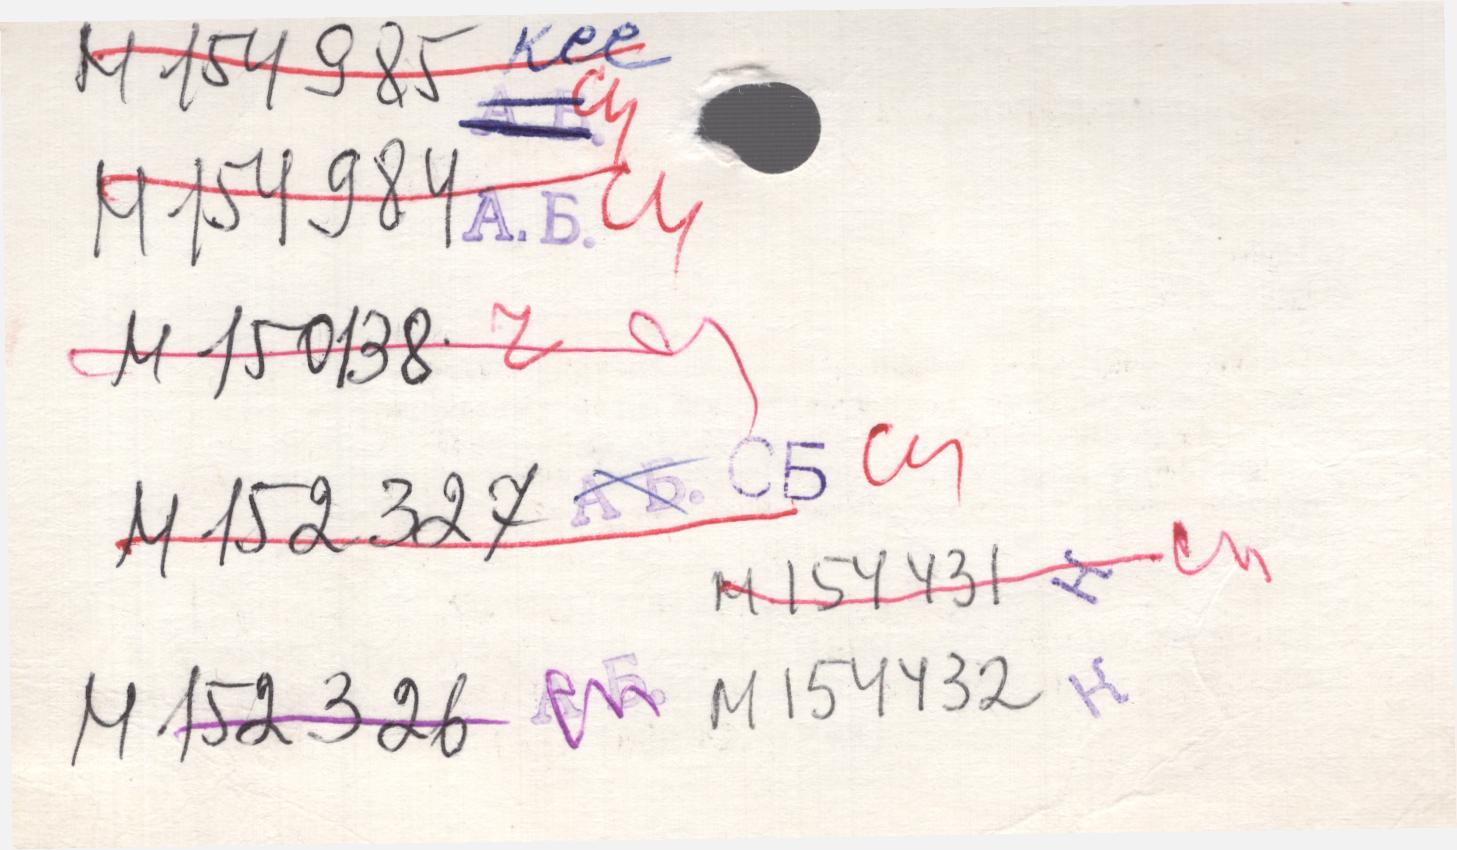 М 154985 кее
А.Б. Сч
М 154984 А.Б. Сч
М 150138 ч
М 152327 А.Б. СБ Сч
М 154431 Н Сч
М 152326 А.Б.
М 154432 Н